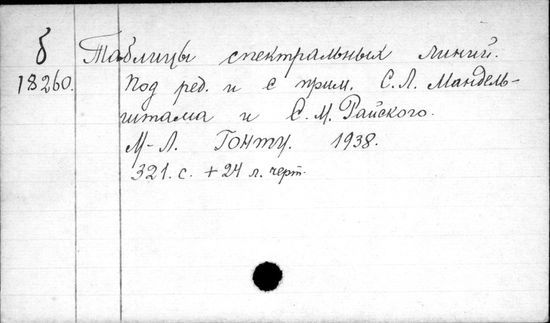 б Таблицы спектральных линий.
18260. Под ред. и с прим. С.Л. Мандель-
штама и С.М. Райского.
М-Л. ГОНТИ. 1938.
321. с. + 24 л. черт.